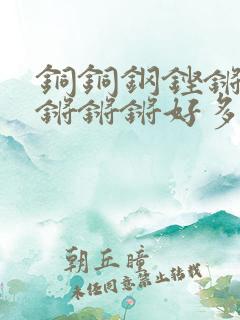 銅銅鋼鏗鏘
鏘鏘鏘好多
朝丘曈
未任同意禁止转载